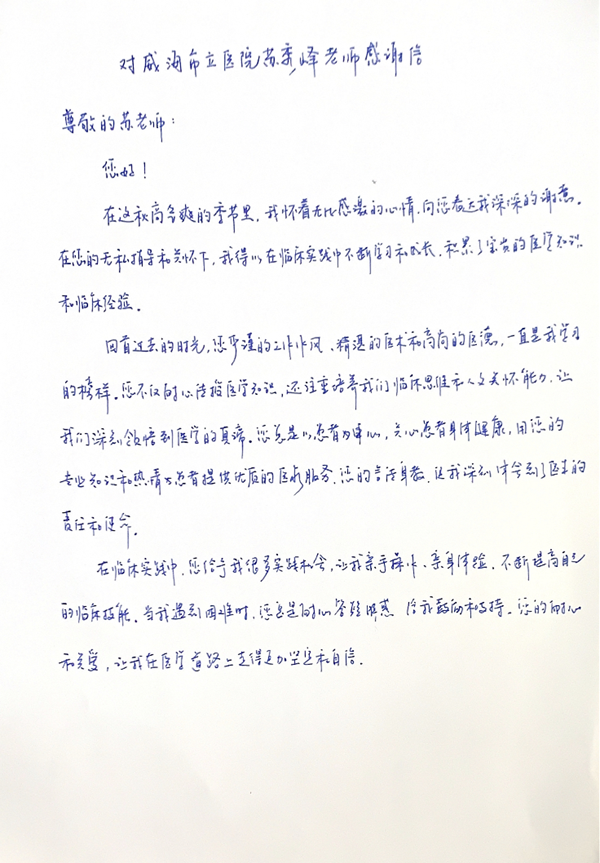 对威海市立医院苏秀峰老师感谢信
尊敬的苏老师：
您好！
在这秋高气爽的季节里，我怀着无比感激的心情，向您表达我深深的谢意。
在您的无私指导和关怀下，我得以在临床实践中不断学习和成长，积累了宝贵的医学知识
和临床经验。
回首过去的时光，您严谨的工作作风、精湛的医术和高尚的医德，一直是我学习
的榜样。您不仅耐心传授医学知识，还注重培养我们临床思维和人文关怀能力，让
我们深刻领悟到医学的真谛。您总是以患者为中心，关心患者身体健康，用您的
专业知识和热情为患者提供优质的医疗服务。您的言传身教，让我深刻体会到了医生的
责任和使命。
在临床实践中，您给予我很多实践机会，让我亲手操作、亲身体验，不断提高自己
的临床技能。当我遇到困难时，您总是耐心答疑解惑 给我鼓励和支持。您的耐心
和关爱，让我在医学道路上走得更加坚定和自信。